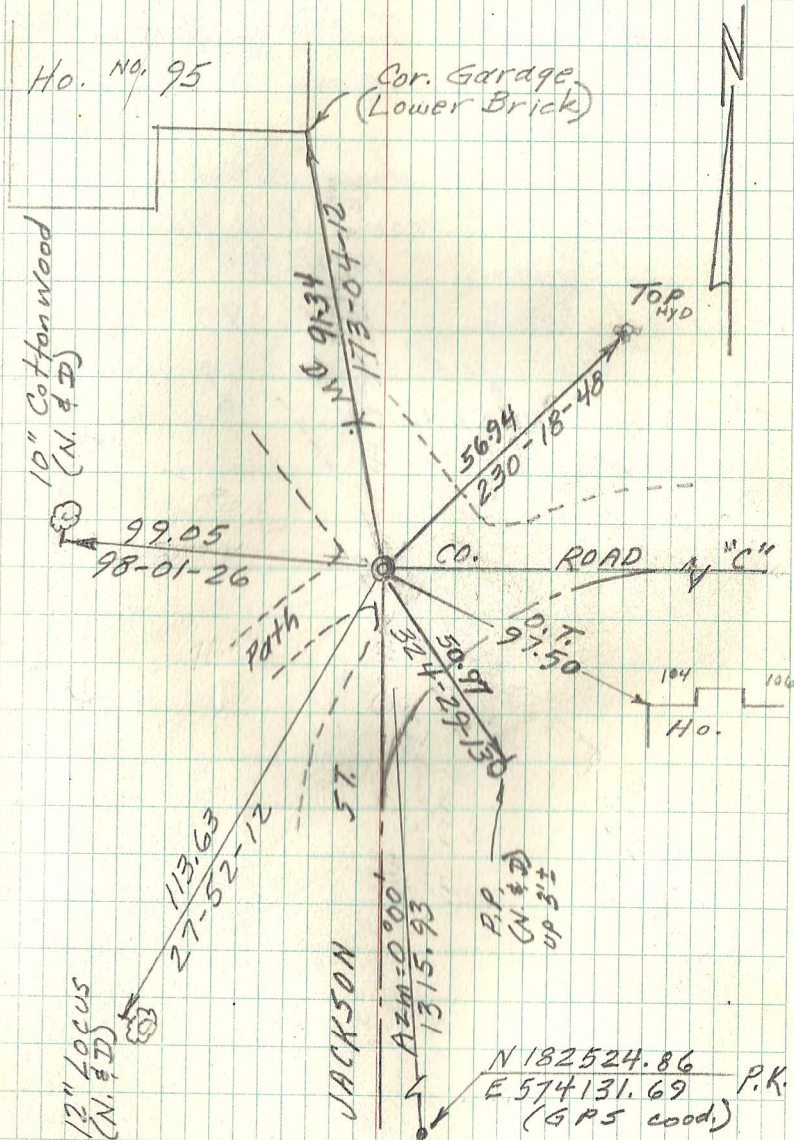 N
Ho. No. 95
Cor. Garage
(Lower Brick)
10" Cottonwood
(N. & D)
MD 91.34
173-04-12
TOP
HYD
56.94
230-18-48
99.05
98-01-26
CO. ROAD "C"
Path
O.T.
97.50
50.97
324-29-13
104
106
Ho.
ST.
113.63
27-52-12
P.P.
(N. & D)
up 3'±
JACKSON
Azm=0°00
1315.93
12" Locus
(N. & D)
N 182524.86
E 574131.69
P.K.
(GPS cood.)